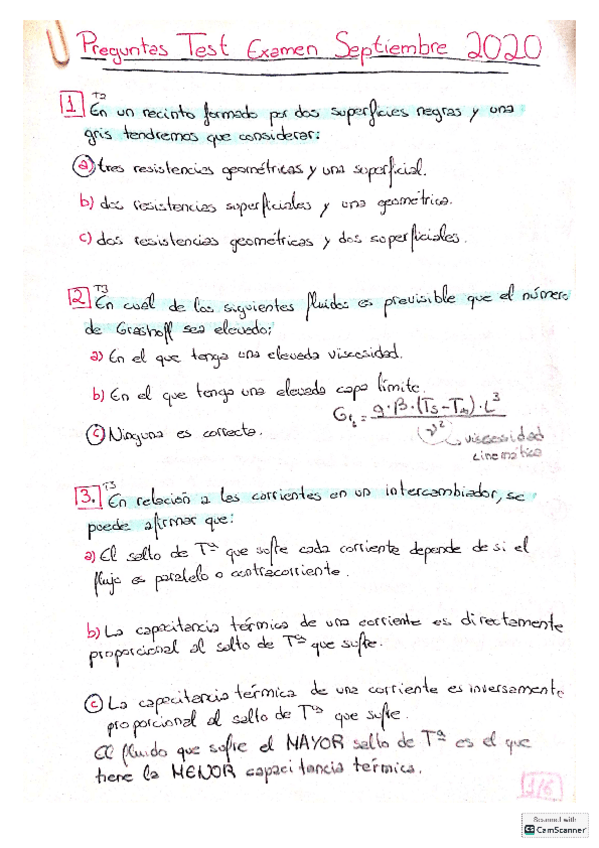 Preguntas Test Examen Septiembre 2020
1 T2 En un recinto formado por dos superficies negras y una
gris tendremos que considerar:
a) tres resistencias geométricas y una superficial.
b) dos resistencias superficiales y una geométrica.
c) dos resistencias geométricas y dos superficiales.
2 T3 En cuál de los siguientes fluidos es previsible que el número
de Grashoff sea elevado:
a) En el que tenga una elevada viscosidad.
b) En el que tenga una elevada capa límite.
c) Ninguna es correcta.
Gr = g·β·(Ts-T∞)·L³
(ν²) viscosidad
cinemática
3. T3 En relación a las corrientes en un intercambiador, se
puede afirmar que:
a) El salto de Tª que sufre cada corriente depende de si el
flujo es paralelo o contracorriente.
b) La capacitancia térmica de una corriente es directamente
proporcional al salto de Tª que sufre.
c) La capacitancia térmica de una corriente es inversamente
proporcional al salto de Tª que sufre.
El fluido que sufre el MAYOR salto de Tª es el que
tiene la MENOR capacitancia térmica.
1/6
Scanned with
CS CamScanner